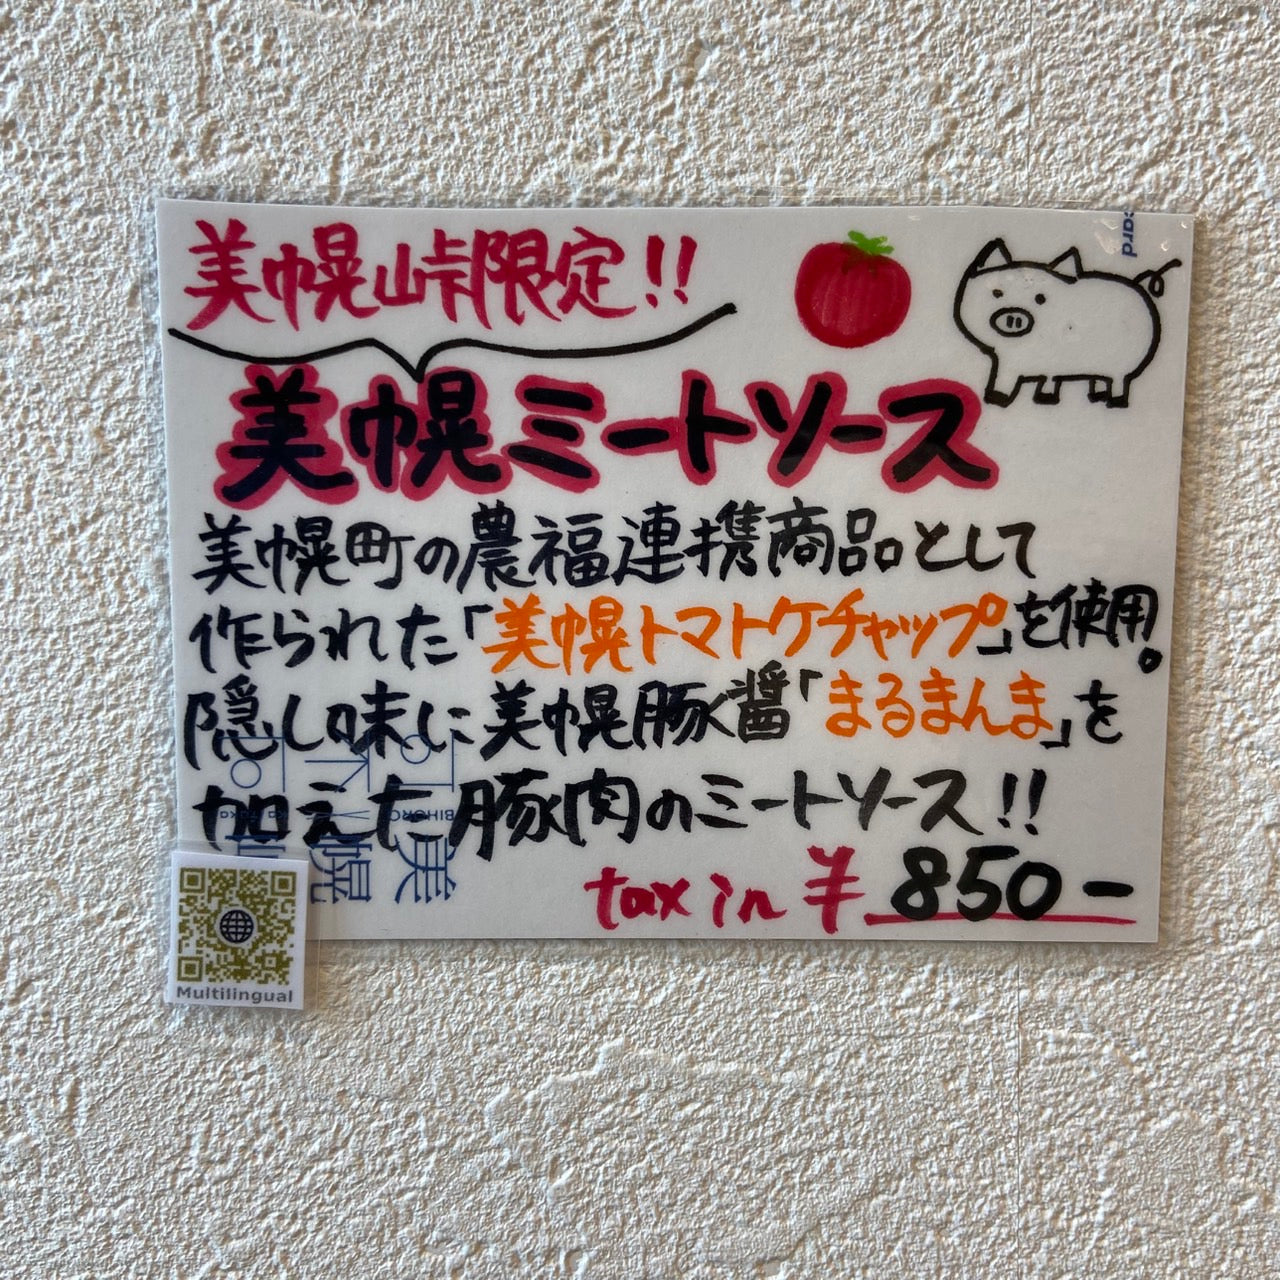 美幌峠限定!!
美幌ミートソース
美幌町の農福連携商品として
作られた「美幌トマトケチャップ」を使用。
隠し味に美幌豚醤「まるまんま」を
加えた豚肉のミートソース!!
tax in ¥850-
Multilingual
card
BIHORO
美幌